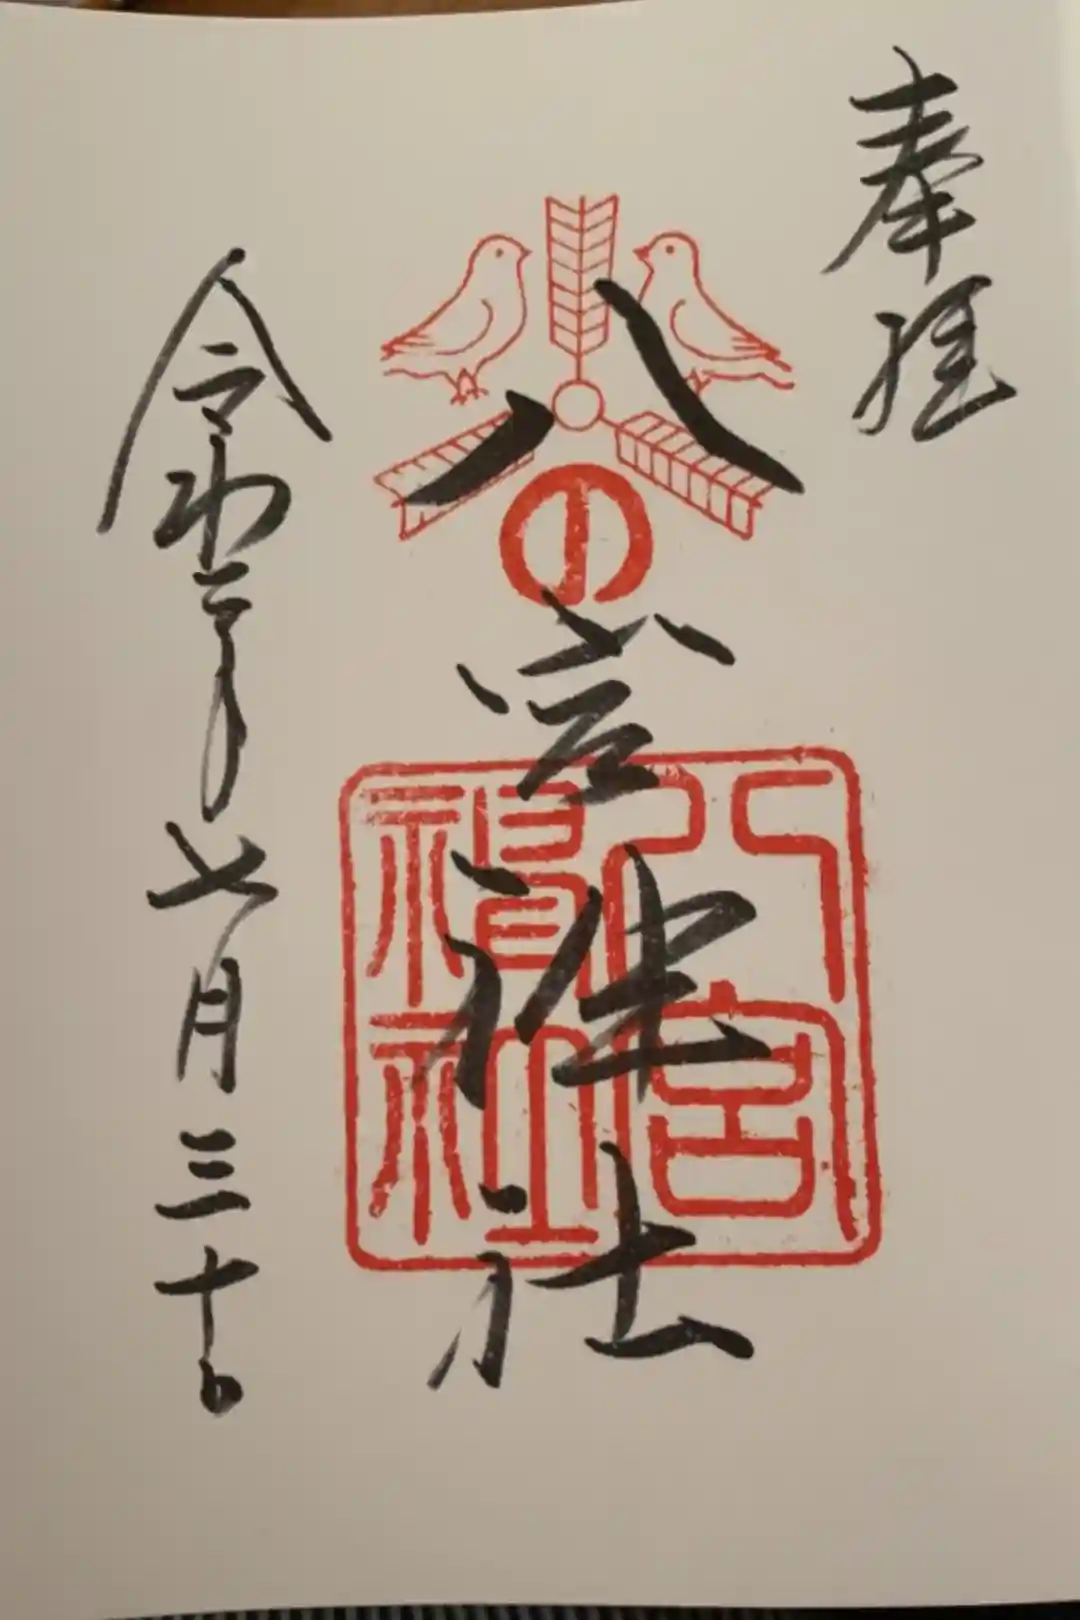 奉拝
八の宮神社
八宮
神社
令和二年七月三十日